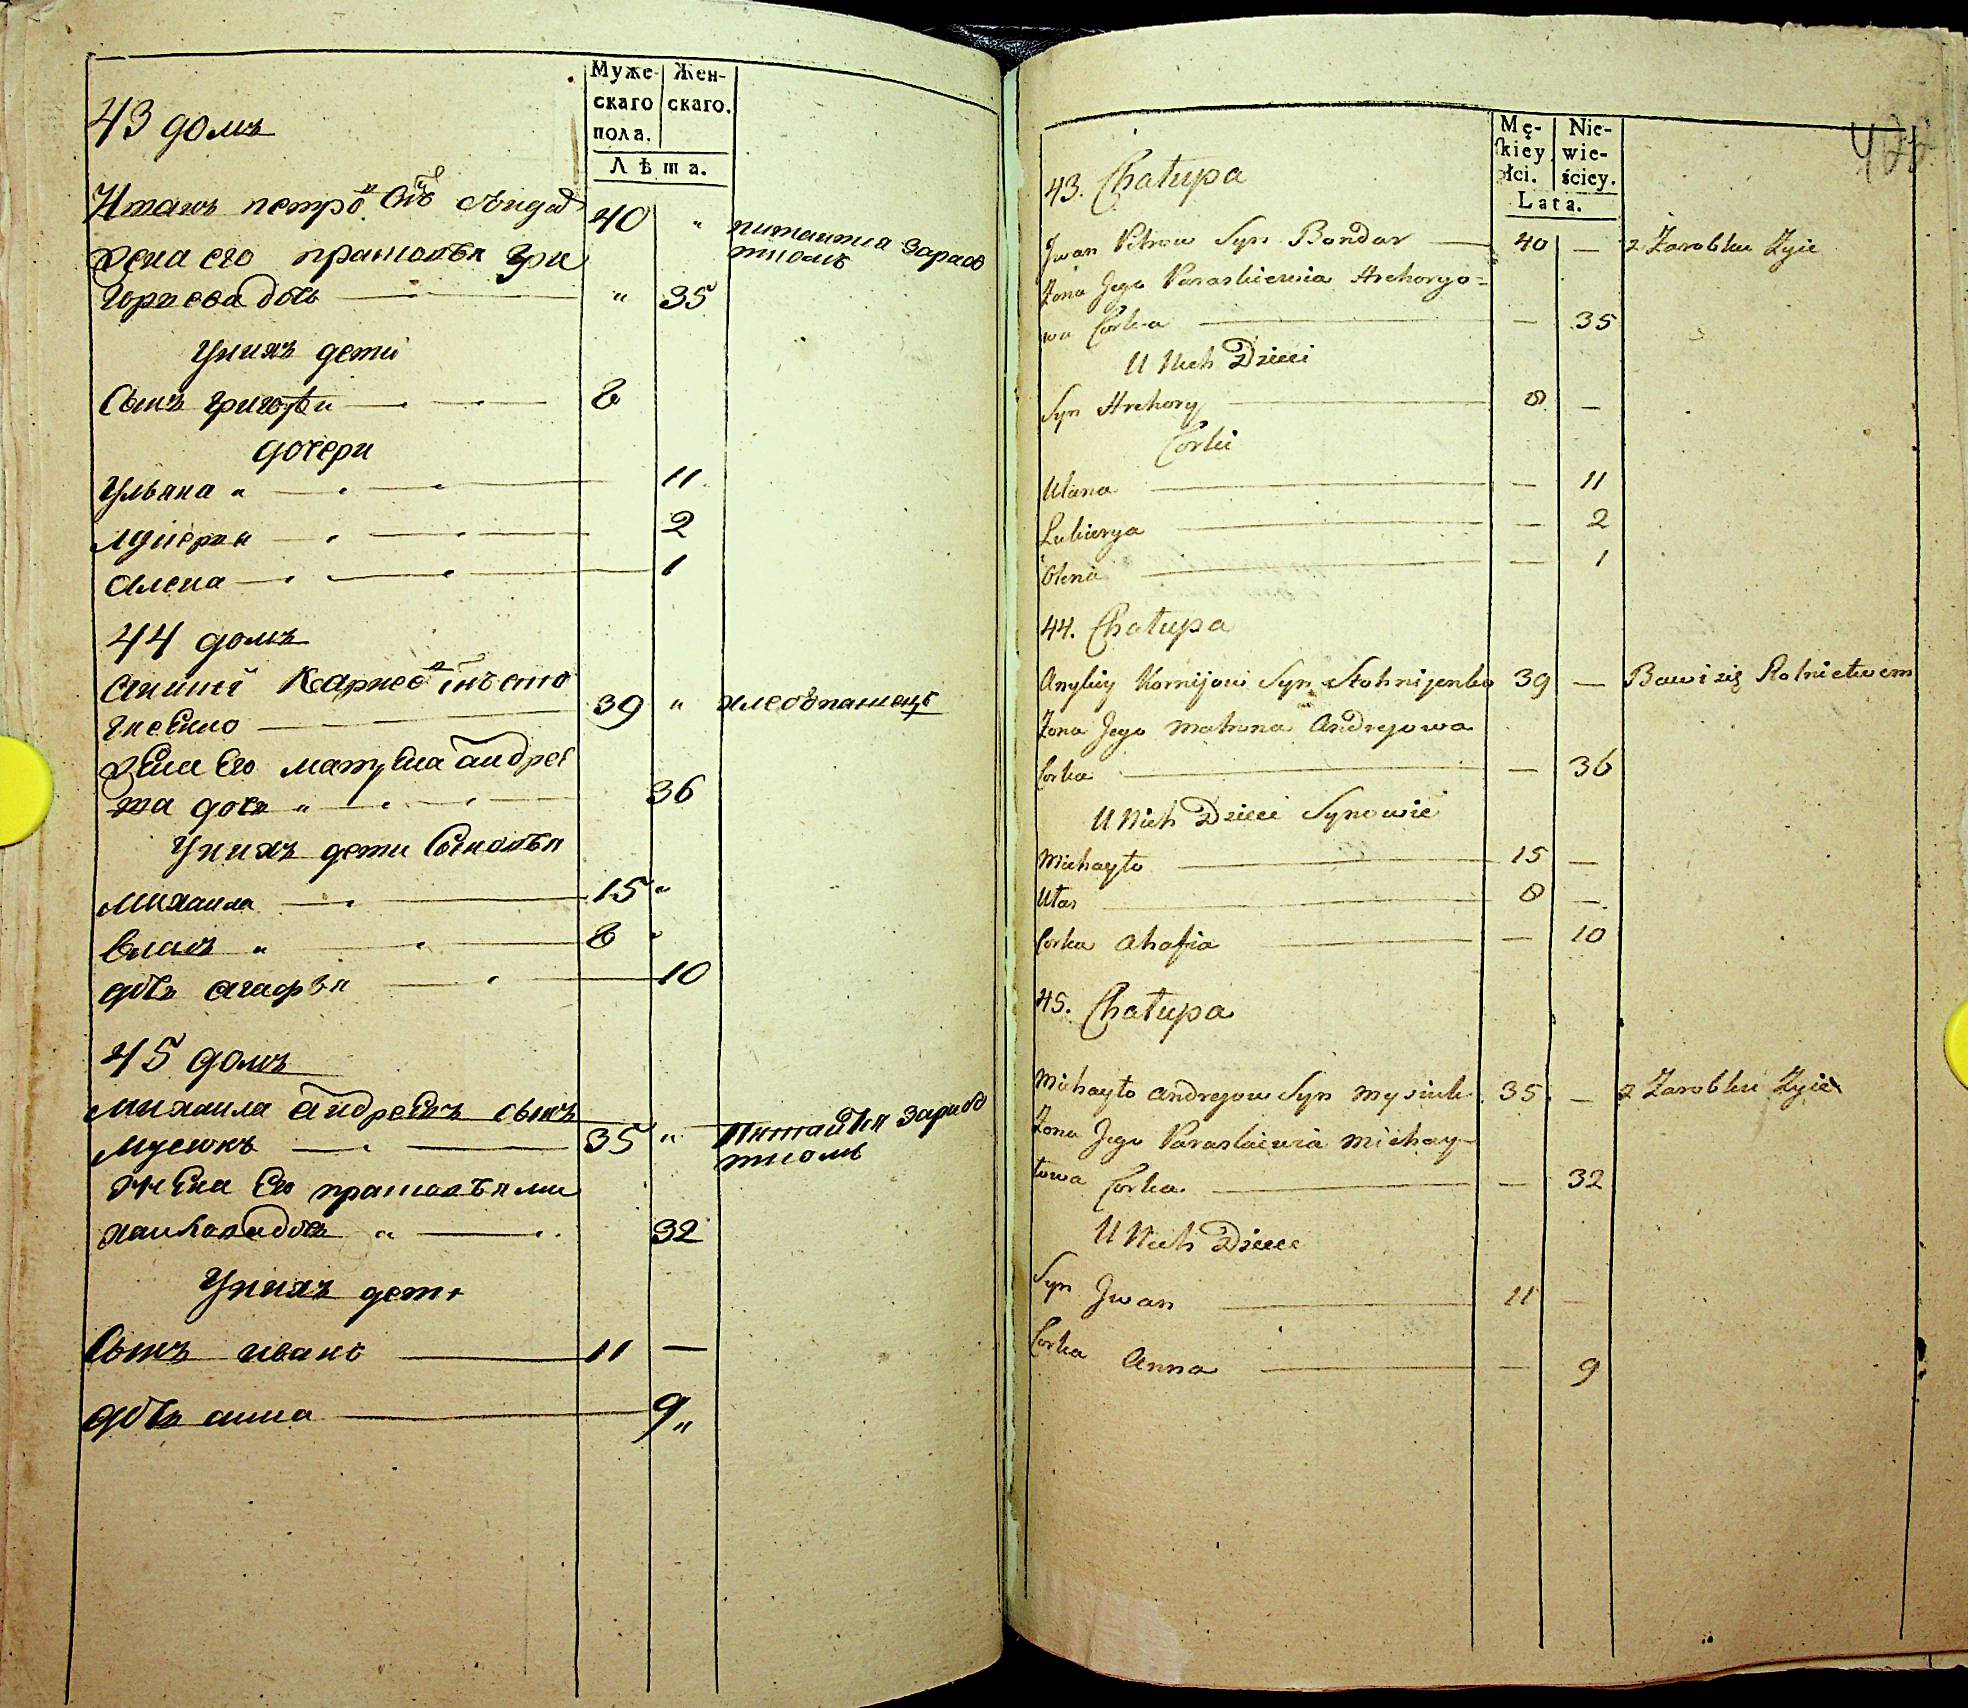 Муже-
скаго
пола.
Жен-
скаго.
Лѣта.
43 домъ
петро
40 " питаитца зараб
жена его прасковья гри
горьева дочь — " 35
унихъ дети
Сынъ григорѣи — 8
дочери
Ульяна " — 11
2
Алена — 1
44 домъ
Карнеѡ
39 " хлебопашецъ
жена Его матрЕна андрее
ва дочь " — 36
Унихъ дети Сыновья
михаила — 15 "
Влась " 8 "
дочь агафья — 10
45 домъ
михаила андреевъ сынъ
мусюкъ — 35 " питаитця зароб
жЕна Его прасковья ми
хаиловадочь " — 32
Унихъ дети
Сынъ иванъ — 11 —
дочь анна — 9 "
Mę-
skiey
płci.
Nie-
wie-
ściey.
Lata.
43. Chałupa
Jwan Petrow Syn Bondar — 40 — z Zarobku Żyie
Żona Jego Paraskiewia Hrehoryo=
wa Corka — — 35
U Nich Dzieci
Syn Hrehory — 8 —
Corki
Ulana — — 11
Lukierya — — 2
Olena — — 1
44. Chałupa
Onykiy Kornijow Syn Stohnijenko 39 — Bawi się Rolnictwem
Żona Jego Matrona Andrejowa
Corka — — 36
U Nich Dzieci Synowie
Michayło — 15 —
Ułas — 8 —
Corka Ahafia — — 10
45. Chałupa
Michayło Andrejow Syn Mysiuk 35 — z Zarobku Żyie
Żona Jego Paraskiewia Michay-
łowa Corka — — 32
U Nich Dzieci
Syn Jwan — 11 —
Corka Anna — — 9